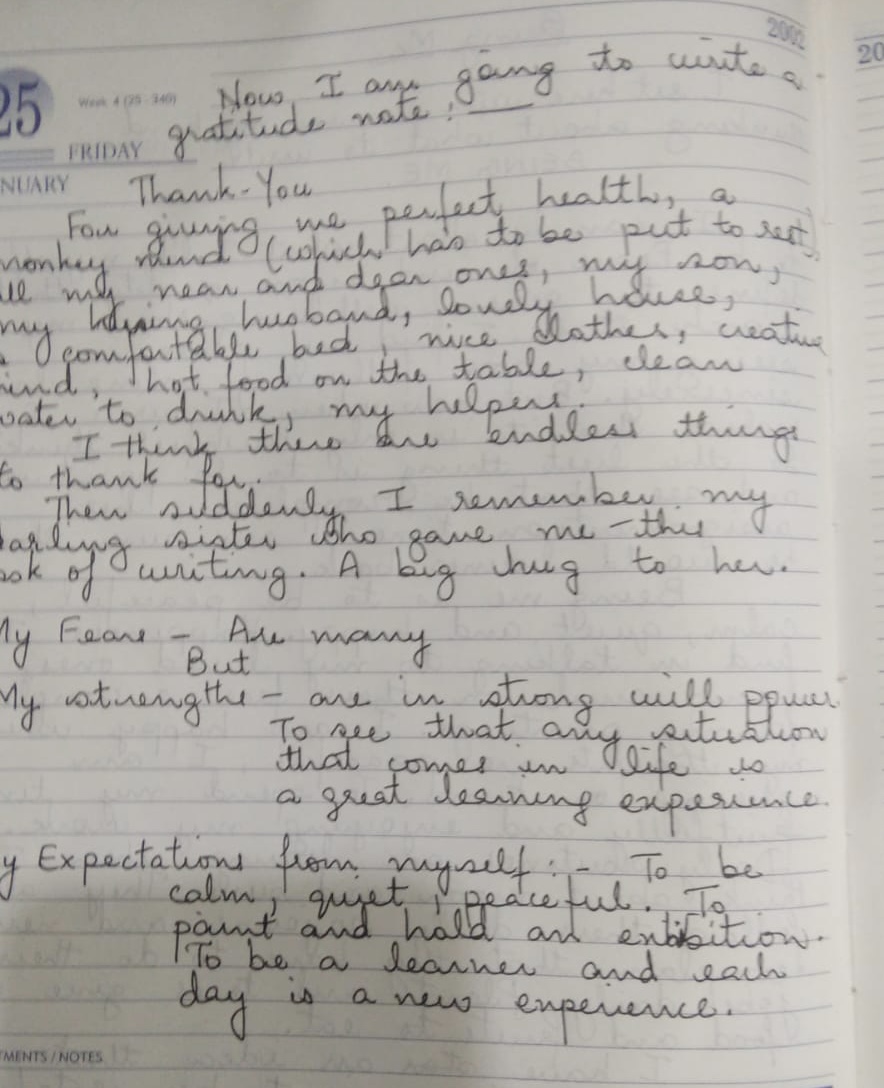 2002
20
25
Week 4 (25 - 340)
Now I am going to write a
gratitude note :—
FRIDAY
NUARY
Thank-You
For giving me perfect health, a
monkey mind (which has to be put to rest),
all my near and dear ones, my son,
my husband, lovely house,
a comfortable bed, nice clothes, creative
mind, hot food on the table, clean
water to drunk, my helpers.
I think there are endless things
to thank for.
Then suddenly I remember my
darling sister who gave me this
book of writing. A big hug to her.
My Fears - Are many
But
My strengths - are in strong will power
To see that any situation
that comes in life is
a great learning experience.
y Expectations from myself :- To be
calm, quiet, peaceful. To
paint and hold an exhibition.
To be a learner and each
day is a new experience.
TMENTS / NOTES